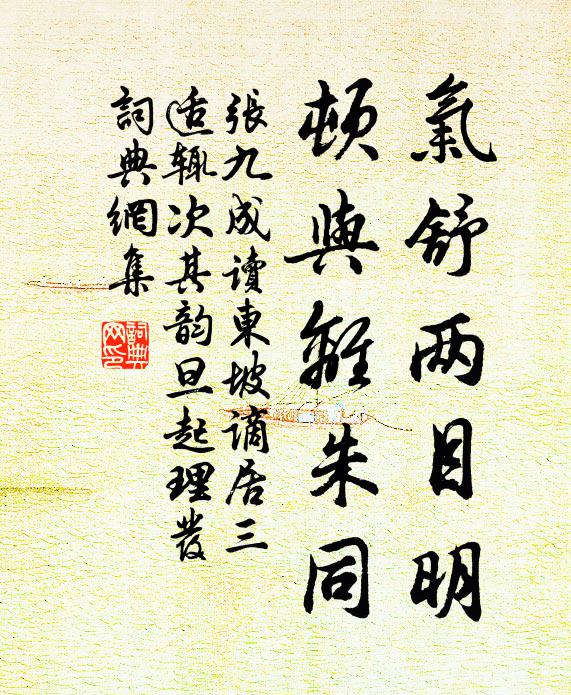 氣舒两目明
頓與離朱同
張九成讀東坡謫居三
适輒次其韵旦起理髮
詞典網集
詞典网印